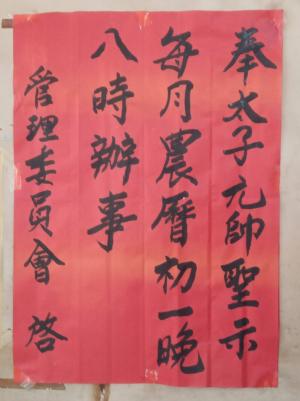 奉太子元帥聖示
每月農曆初一晚
八時辦事
管理委員會 啓